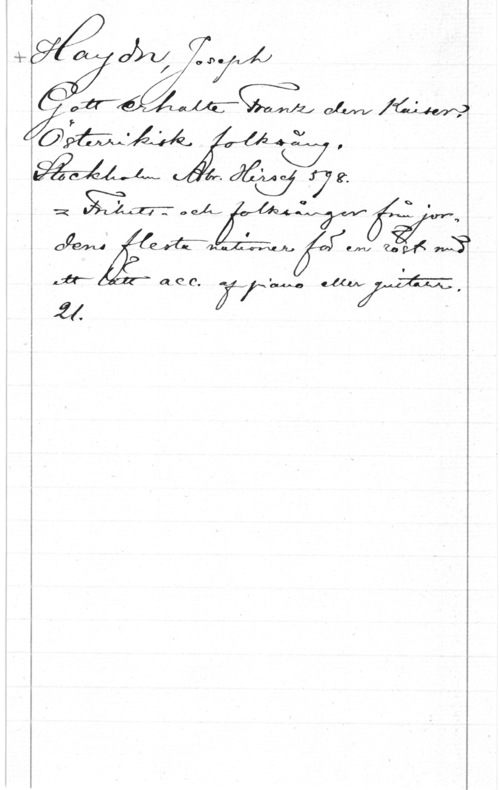 + Haydn, Joseph
Gott erhalte Franz den Kaiser?
Österrikisk folksång.
Stockholm Abr. Hirsch 598.
= Frihets- och folksånger från jor-
dens flesta nationer för en röst med
ett lätt acc. af piano eller guitarr.
21.